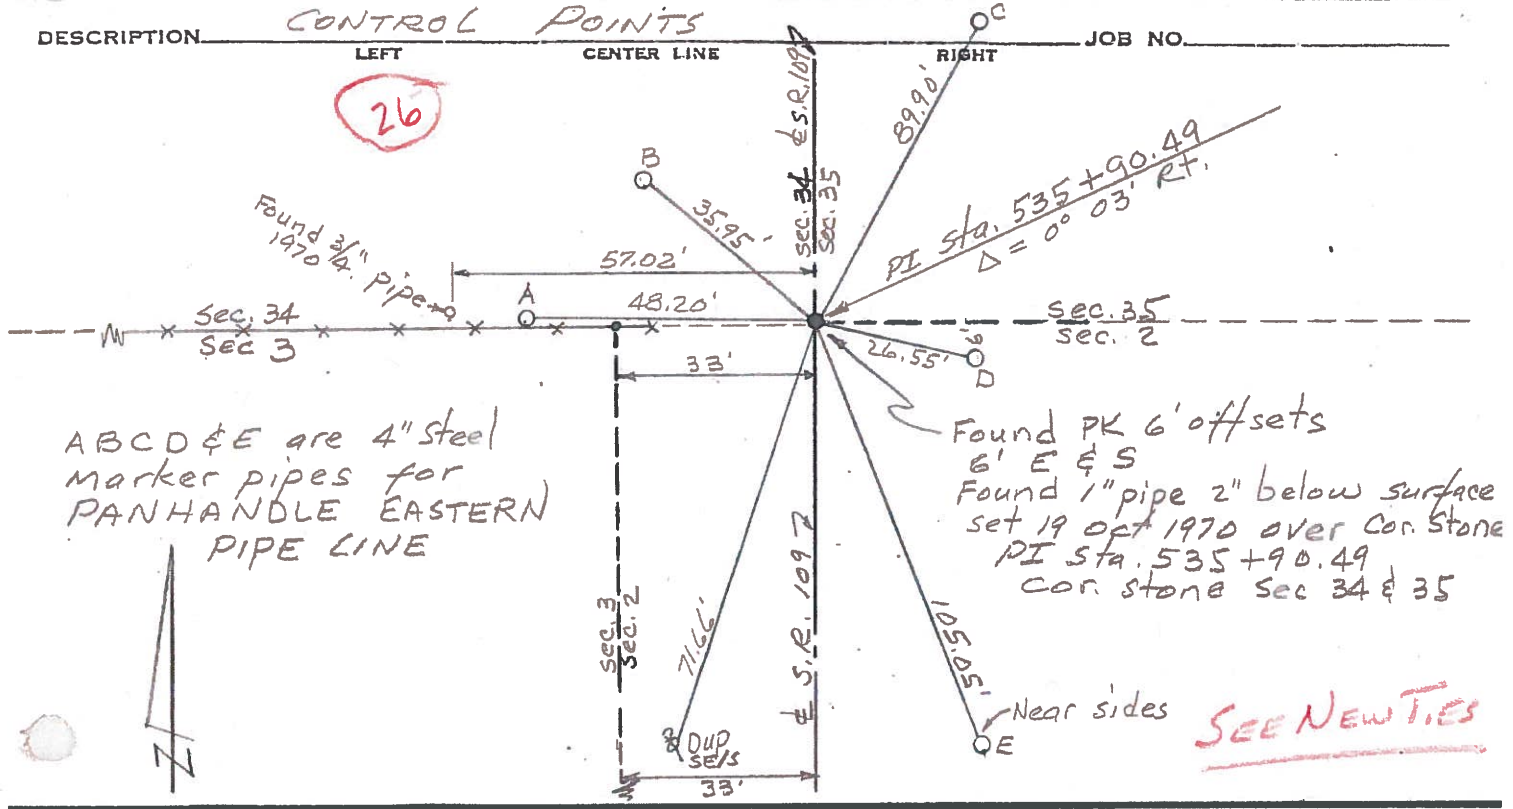 DESCRIPTION CONTROL POINTS JOB NO.
LEFT CENTER LINE RIGHT
26
C
89.90'
℄ S.R. 109
Sec. 34
Sec. 35
B
35.95'
PI Sta. 535+90.49
Δ = 0° 03' Rt.
Found 3/4" pipe
1970
57.02'
A
48.20'
Sec. 34
Sec 3
Sec. 35
Sec. 2
6'
26.55'
D
33'
ABCD & E are 4" Steel
Marker pipes for
PANHANDLE EASTERN
PIPE LINE
Found PK 6' offsets
6' E & S
Found 1" pipe 2" below surface
set 19 Oct 1970 over Cor. Stone
PI Sta. 535+90.49
Cor. Stone Sec 34 & 35
Sec. 3
Sec. 2
71.66'
℄ S.R. 109
105.05'
Near sides
E
DUP
SE/S
33'
N
SEE NEW TIES